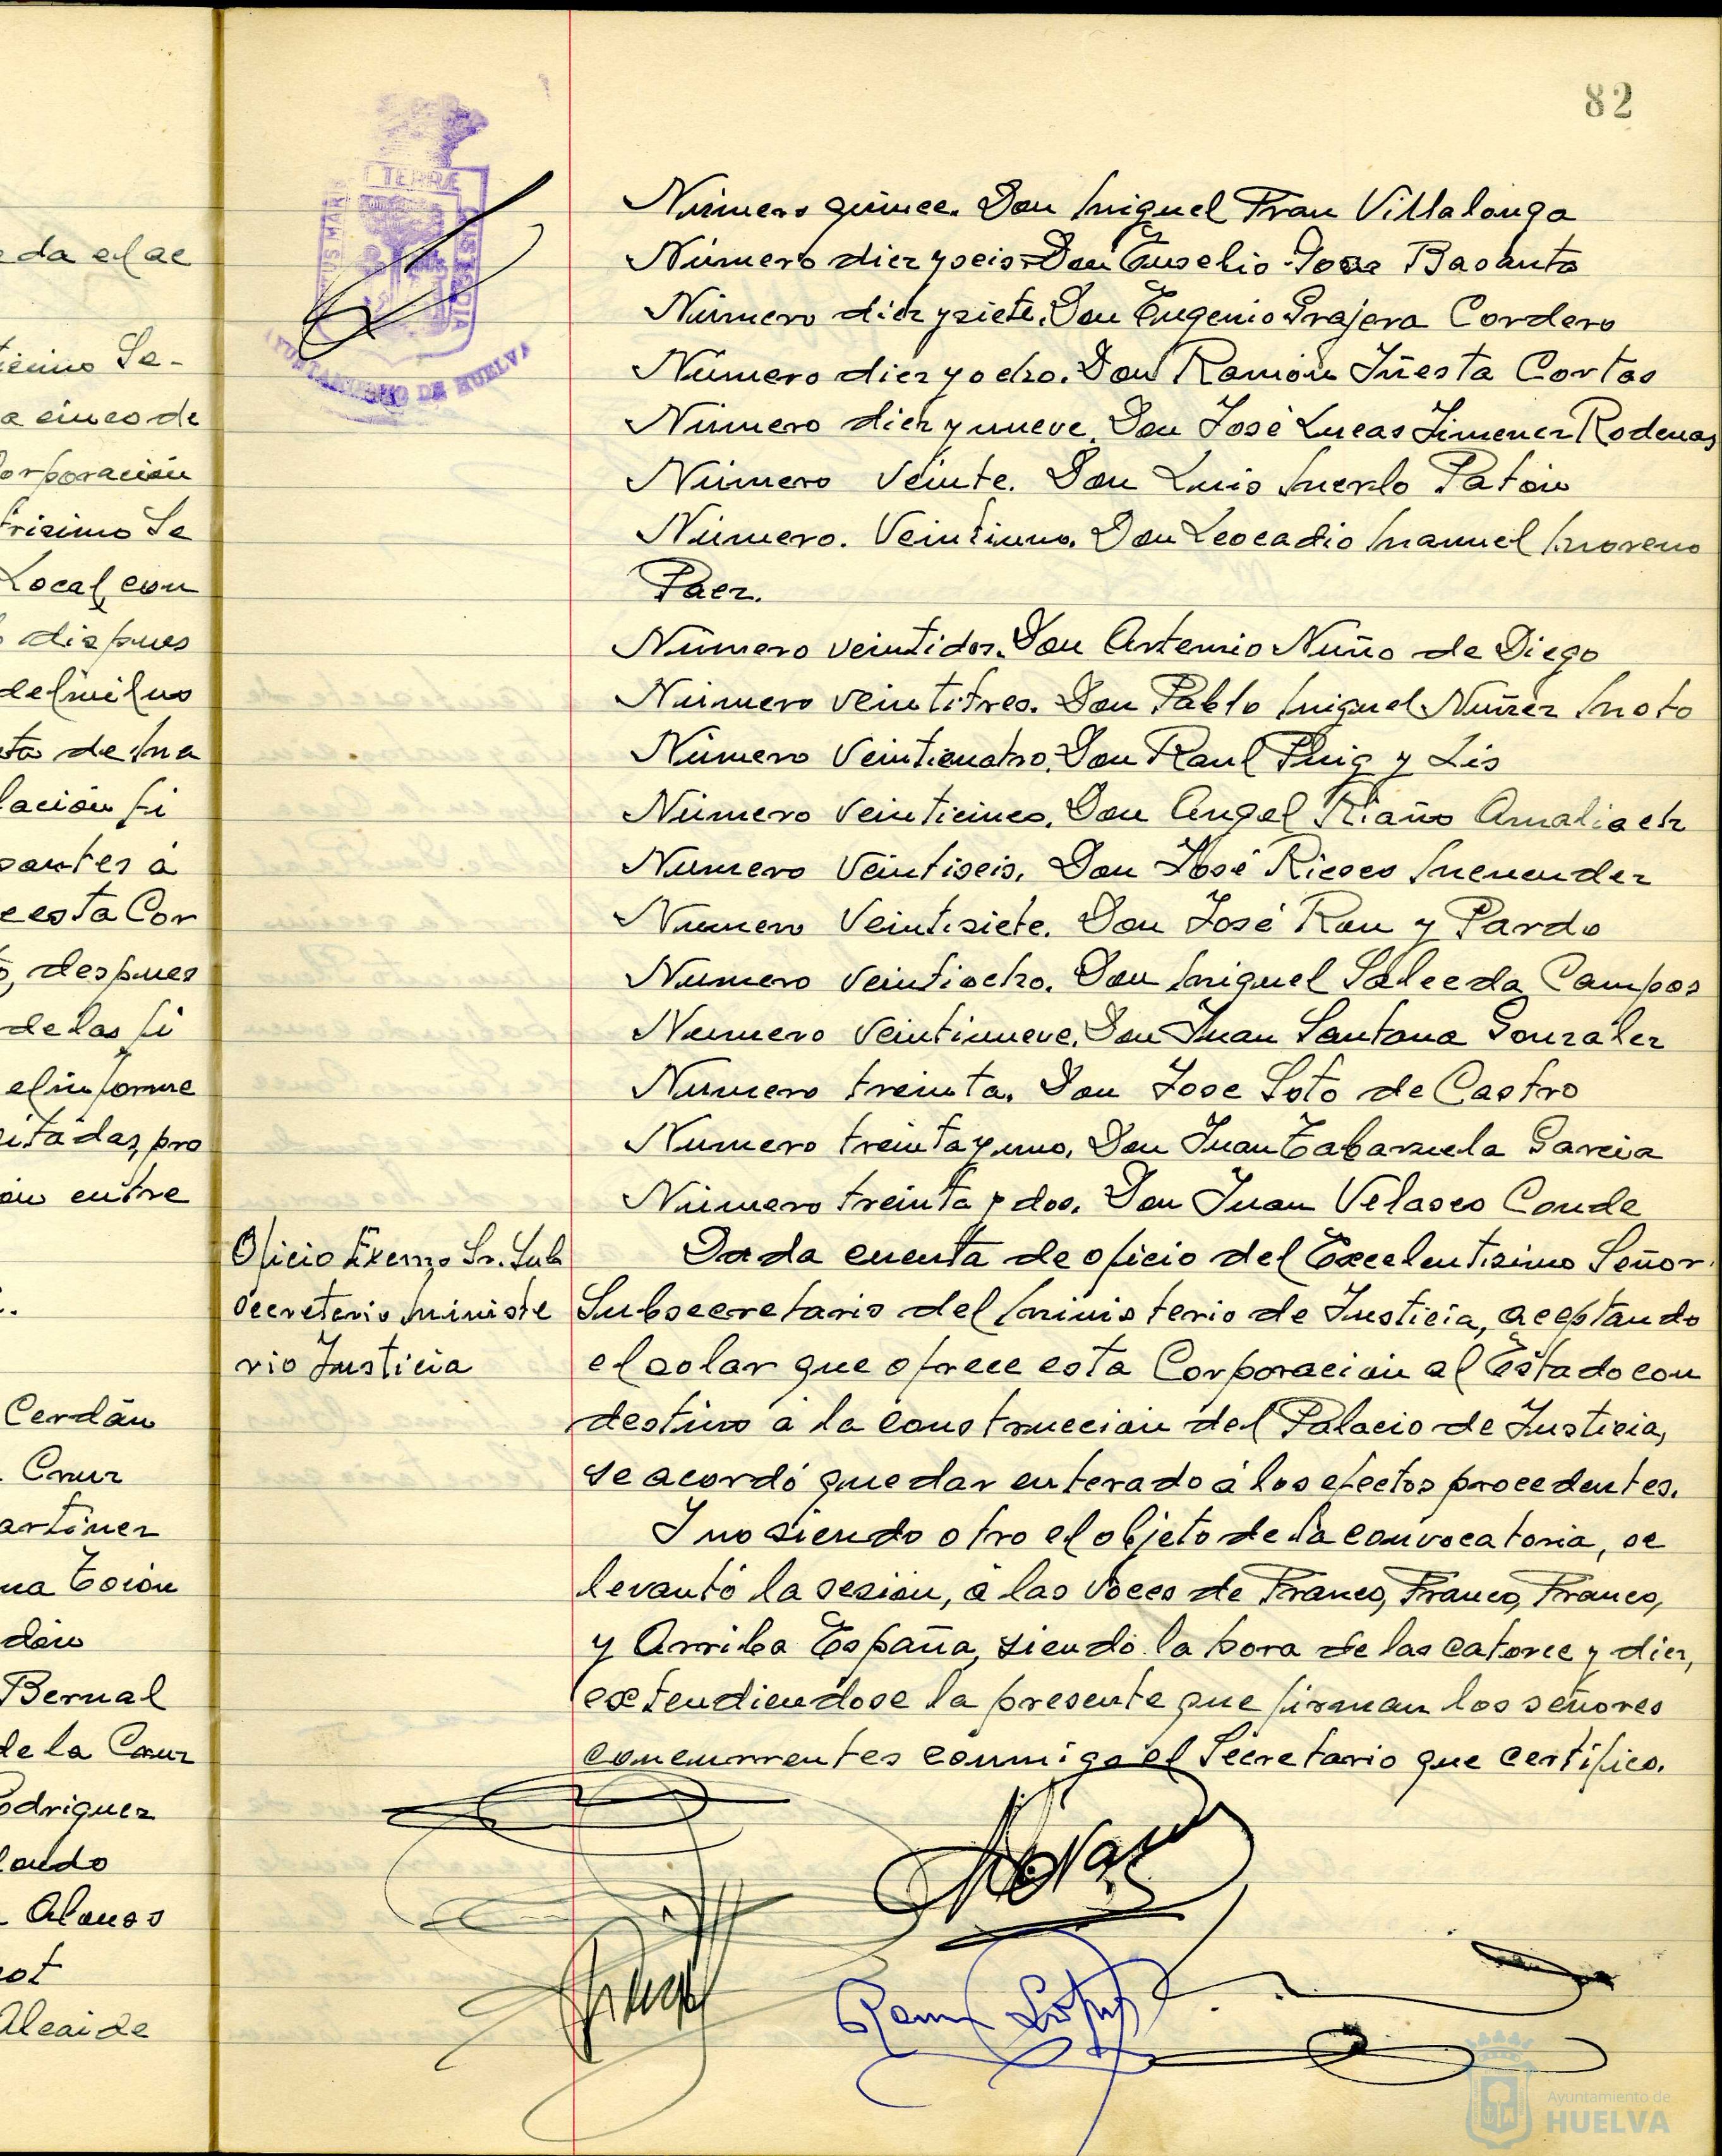 82
da el ac
Se-
a cinco de
orporación
trisimo Se
Local, con
dispues
ta de Ma
lación fi
santes à
e esta Cor
despues
de las fi
el informe
citadas, pro
entre
Cerdán
Cruz
artinez
Bernal
de la Cruz
odriguez
Alonso
ot
Alcaide
TERRÆ
CUSTODIA
AYUNTAMIENTO DE HUELVA
Número quince. Don Miguel Fran Villalonga
Número diez y seis. Don Basanta
Número diez y siete. Don Eugenio Grajera Cordero
Número diez y ocho. Don Ramón Iñesta Cortas
Número diez y nueve. Don José Lucas Jimenez Rodenas
Número veinte. Don Luis Merlo Patón
Número. Veintiuno. Don Leocadio Manuel Moreno
Paez.
Número veintidos. Don Artemio Nuño de Diego
Número veintitres. Don Pablo Miguel Nuñez Moto
Número veinticuatro. Don Raul Puig y Lis
Número veinticinco. Don Angel Riaño
Numero veintiseis. Don José Riesco Menendez
Numero veintisiete. Don José Ron y Pardo
Numero veintiocho. Don Miguel Salceda Campos
Numero veintinueve. Don Juan Santana Gonzalez
Numero treinta. Don Jose Soto de Castro
Numero treinta y uno. Don Juan Tabarzuela Garcia
Número treinta y dos. Don Juan Velasco Conde
Oficio Exemo Sr. Sub
secretario Ministe
rio Justicia
Dada cuenta de oficio del Excelentisimo Señor
Subsecretario del Ministerio de Justicia, aceptando
el solar que ofrece esta Corporación al Estado con
destino à la construcción del Palacio de Justicia,
se acordó quedar enterado à los efectos procedentes.
I no siendo otro el objeto de la convocatoria, se
levantó la sesión, à las voces de Franco, Franco, Franco,
y Arriba España, siendo la hora de las catorce y diez,
extendiendose la presente que firman los señores
concurrentes conmigo el Secretario que certifico.
Ayuntamiento de
HUELVA